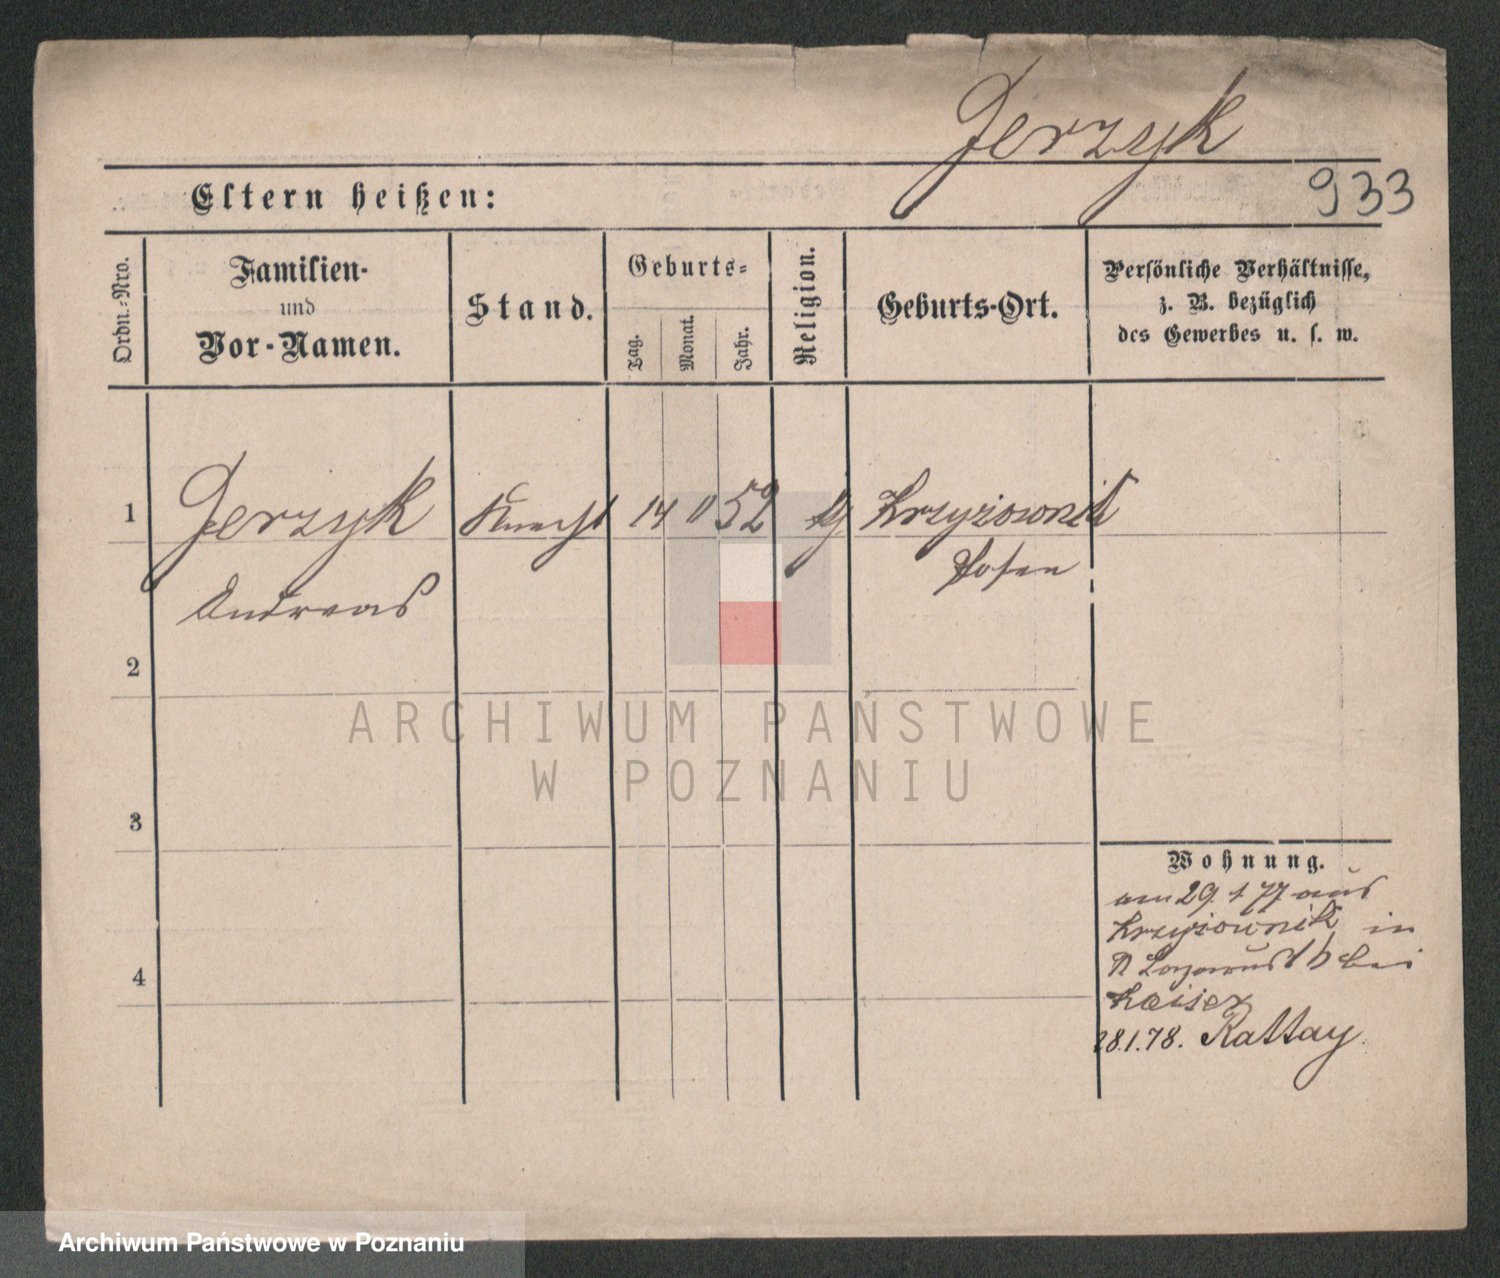 Jerzyk
933
Eltern heißen:
Ordn.-Nro.
Familien-
und
Vor-Namen.
Stand.
Geburts-
Tag.
Monat.
Jahr.
Religion.
Geburts-Ort.
Persönliche Verhältnisse,
z. B. bezüglich
des Gewerbes u. s. w.
1
Jerzyk Knecht 14 11 52 Krzyżownik
Posen
Andreas
2
ARCHIWUM PAŃSTWOWE
W POZNANIU
3
Wohnung.
am 29 1 77 aus
Krzyżownik in
Lazarus bei
Kaiser
28.1.78. Rattay.
4
Archiwum Państwowe w Poznaniu